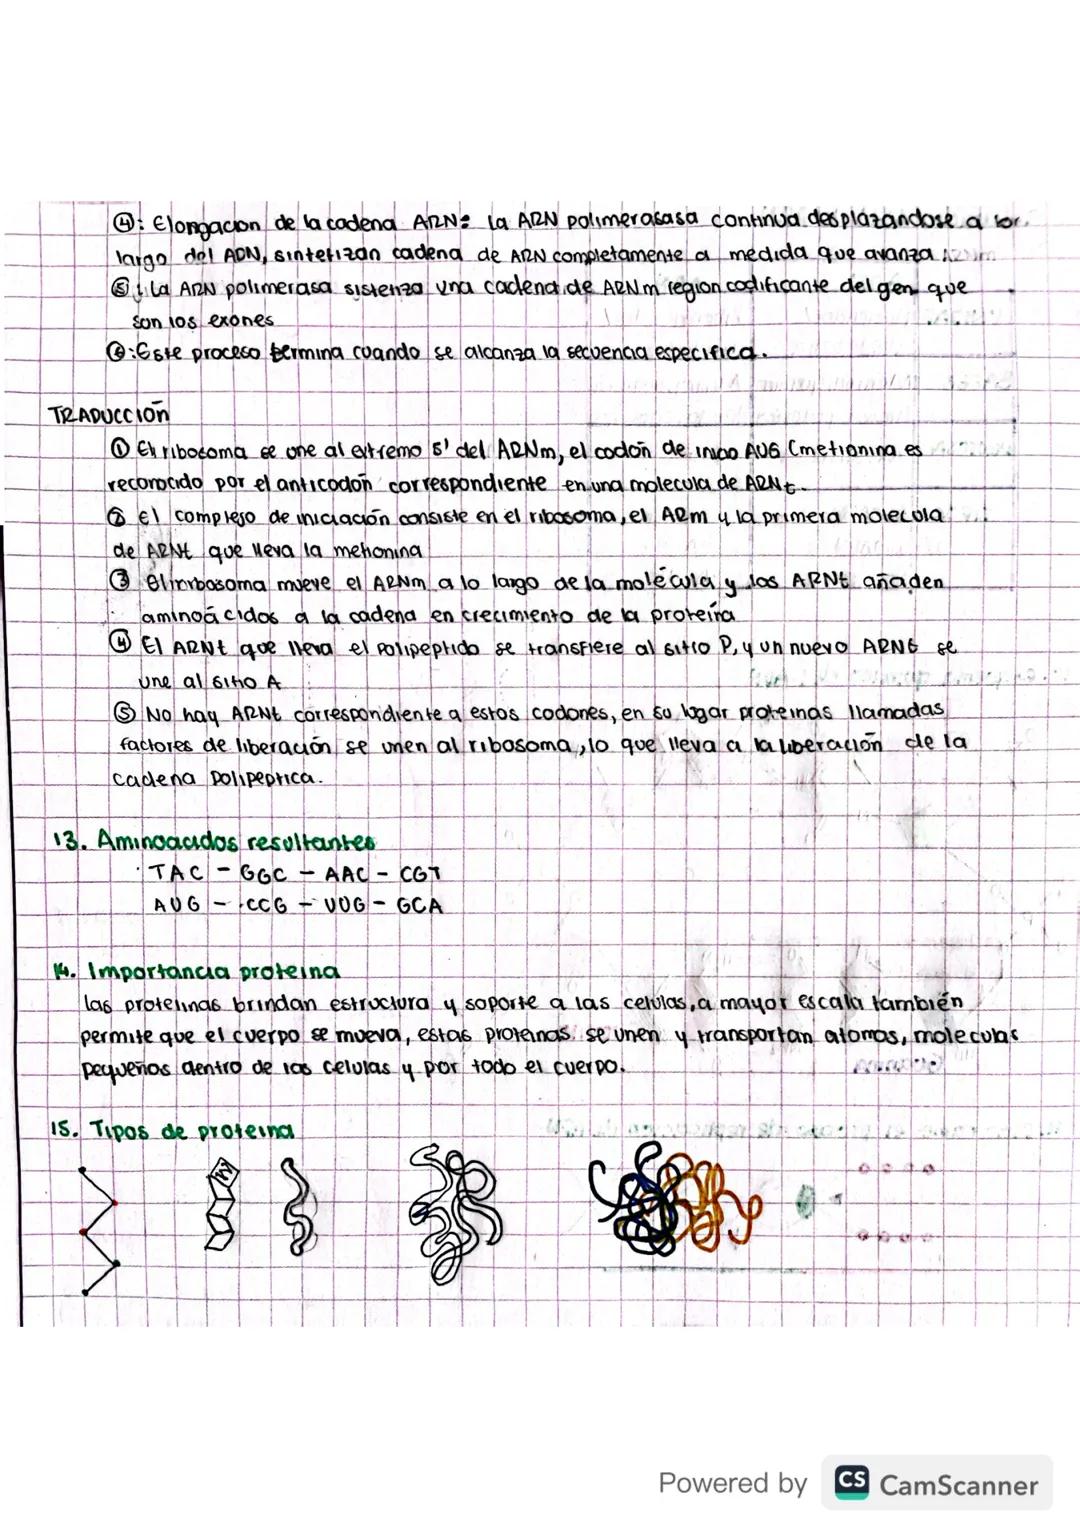 ④: Elongacion de la cadena ARN: la ARN polimerasasa continua desplazandose a lo
largo del ADN, sintetizan cadena de ARN completamente a medida que avanza
⑤: La ARN polimerasa sistenza una cadena de ARNm region codificante del gen que
son los exones
⑥: Este proceso termina cuando se alcanza la secuencia especifica.
TRADUCCIÓN
① El ribosoma se une al extremo 5' del ARNm, el codón de inicio AUG (metionina es
reconocido por el anticodón correspondiente en una molecula de ARNt.
② El complejo de iniciación consiste en el ribosoma, el ARm y la primera molecula
de ARNt que lleva la metionina
③ El ribosoma mueve el ARNm a lo largo de la molécula y los ARNt añaden
aminoácidos a la cadena en crecimiento de la proteína
④ El ARNt que lleva el polipeptido se transfiere al sitio P, y un nuevo ARNt se
une al sitio A
⑤ No hay ARNt correspondiente a estos codones, en su lugar proteinas llamadas
factores de liberación se unen al ribosoma, lo que lleva a la liberación de la
cadena polipeptica.
13. Aminoacidos resultantes
TAC - GGC - AAC - CGT
AUG - CCG - UUG - GCA
14. Importancia proteina
las proteinas brindan estructura y soporte a las celulas, a mayor escala también
permite que el cuerpo se mueva, estas proteinas se unen y transportan atomos, moleculas
pequeños dentro de las celulas y por todo el cuerpo.
15. Tipos de proteina
Powered by CS CamScanner